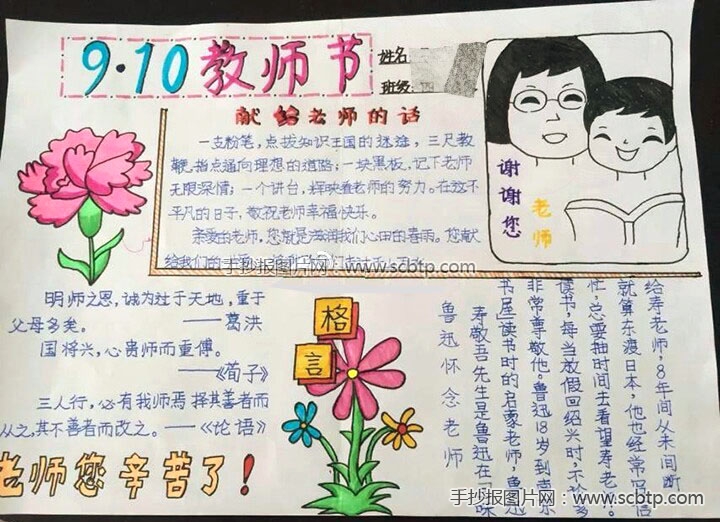 9·10教师节
姓名:
班级:
献给老师的话
一支粉笔,点拨知识王国的迷途,三尺教
鞭,指点通向理想的道路;一块黑板,记下老师
无限深情;一个讲台,辉映着老师的努力。在这不
平凡的日子,敬祝老师幸福快乐。
亲爱的老师,您就是滋润我们心田的春雨。您献
给我们的
手抄报图片网:www.scbtp.com
谢谢您
老师
明师之恩,诚为过于天地,重于
父母多矣。——葛洪
国将兴,心贵师而重傅。
——《荀子》
三人行,必有我师焉择其善者而
从之,其不善者而改之。——《论语》
老师您辛苦了!
格
言
鲁迅怀念老师
寿敬吾先生是鲁迅在"味
书屋"读书时的启蒙老师,鲁迅
非常尊敬他。鲁迅18岁到南京
读书,每当放假回绍兴时,不论多
忙,总要抽时间去看望寿老
就算东渡日本,他也经常写信
给寿老师,8年间从未间断
手抄报图片网:www.scbtp.com